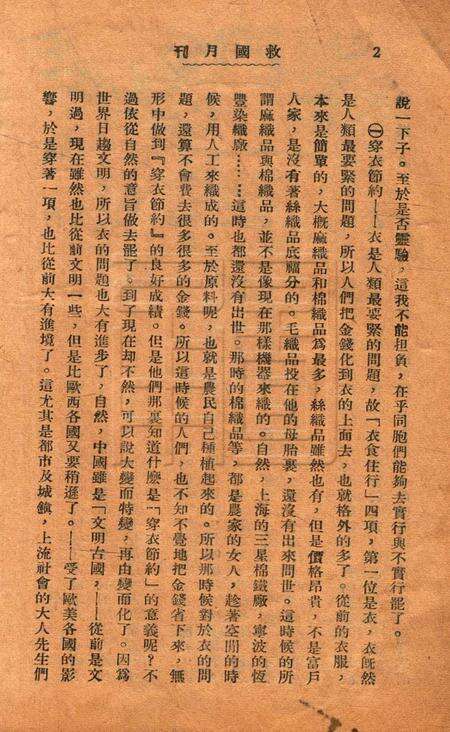 2
救國月刊
說一下子。至於是否靈驗，這我不能担負，在乎同胞們能夠去實行與不實行罷了。
㊀穿衣節約——衣是人類最要緊的問題，故「衣食住行」四項，第一位是衣，衣旣然
是人類最要緊的問題，所以人們把金錢化到衣的上面去，也就格外的多了。從前的衣服，
本來是簡單的，大槪麻織品和棉織品爲最多，絲織品雖然也有，但是價格昂貴，不是富戶
人家，是沒有著絲織品底福分的。毛織品投在他的母胎裏，還沒有出來問世。這時候的所
謂麻織品與棉織品，並不是像現在那樣機器來織的。自然，上海的三星棉鐵廠，寧波的恆
豐染織廠……這時也都還沒有出世。那時的棉織品等，都是農家的女人，趁著空閒的時
候，用人工來織成的。至於原料呢，也就是農民自己種植起來的。所以那時候對於衣的問
題，還算不會費去很多很多的金錢。所以這時候的人們，也不知不覺地把金錢省下來，無
形中做到『穿衣節約』的良好成績。但是他們那裏知道什麼是「穿衣節約」的意義呢？不
過依從自然的意旨做去罷了。到了現在却不然，可以說大變而特變，再由變而化了。因爲
世界日趨文明，所以衣的問題也大有進步了，自然，中國雖是「文明古國，——從前是文
明過，現在雖然也比從前文明一些，但是比歐西各國又要稍遜了。——受了歐美各國的影
響，於是穿著一項，也比從前大有進境了。這尤其是都市及城鎮，上流社會的大人先生們